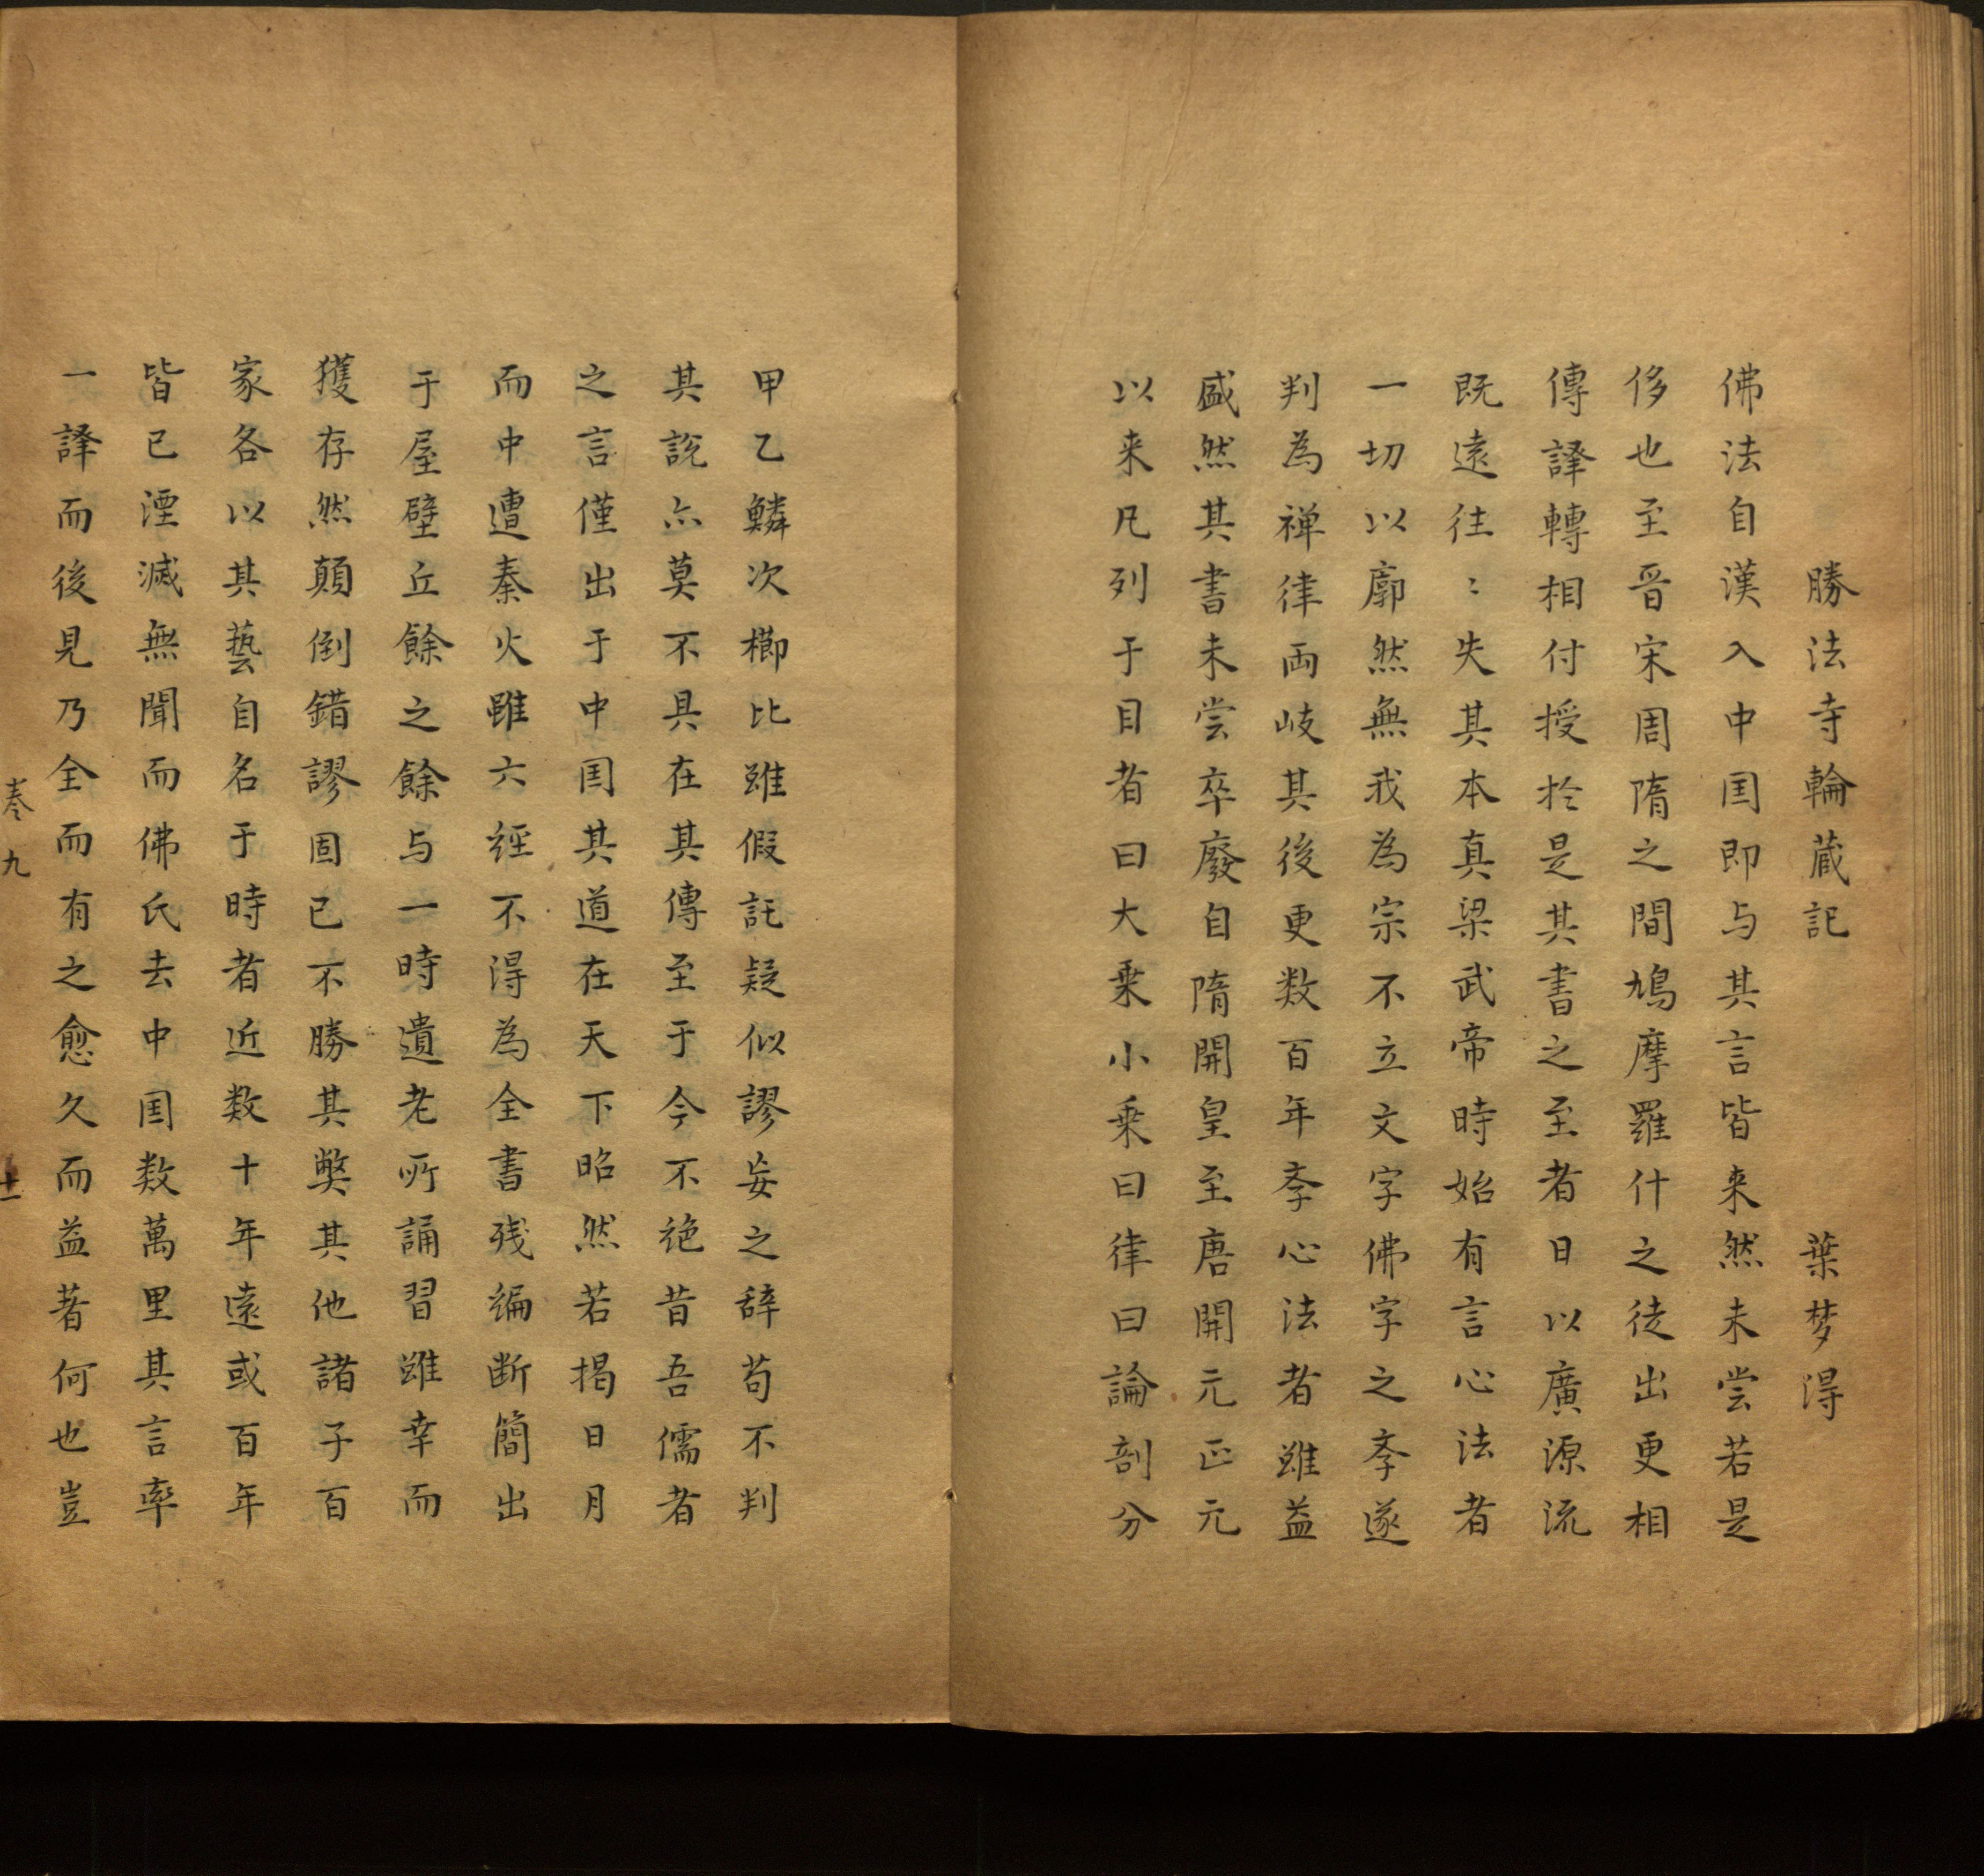 勝法寺輪蔵記　葉梦得
佛法自漢入中囯即与其言皆来然未尝若是
侈也至晋宋周隋之間鳩摩羅什之徒出更相
傳譯轉相付授扵是其書之至者日以廣源流
既遠往〻失其本真梁武帝時始有言心法者
一切以廓然無我為宗不立文字佛字之斈遂
判為禅律両岐其後更数百年斈心法者雖益
盛然其書未尝卒廢自隋開皇至唐開元正元
以来凡列于目者曰大乗小乗曰律曰論剖分
甲乙鱗次櫛比雖假託疑似謬妄之辞苟不判
其說亦莫不具在其傳至于今不絶昔吾儒者
之言僅出于中囯其道在天下昭然若揭日月
而中遭秦火雖六經不淂為全書残编断簡出
于屋壁丘餘之餘与一時遺老所誦習雖幸而
獲存然顛倒錯謬固已不勝其獘其他諸子百
家各以其藝自名于時者近数十年遠或百年
皆已湮滅無聞而佛氏去中囯数萬里其言率
一譯而後見乃全而有之愈久而益著何也豈
卷九　十一